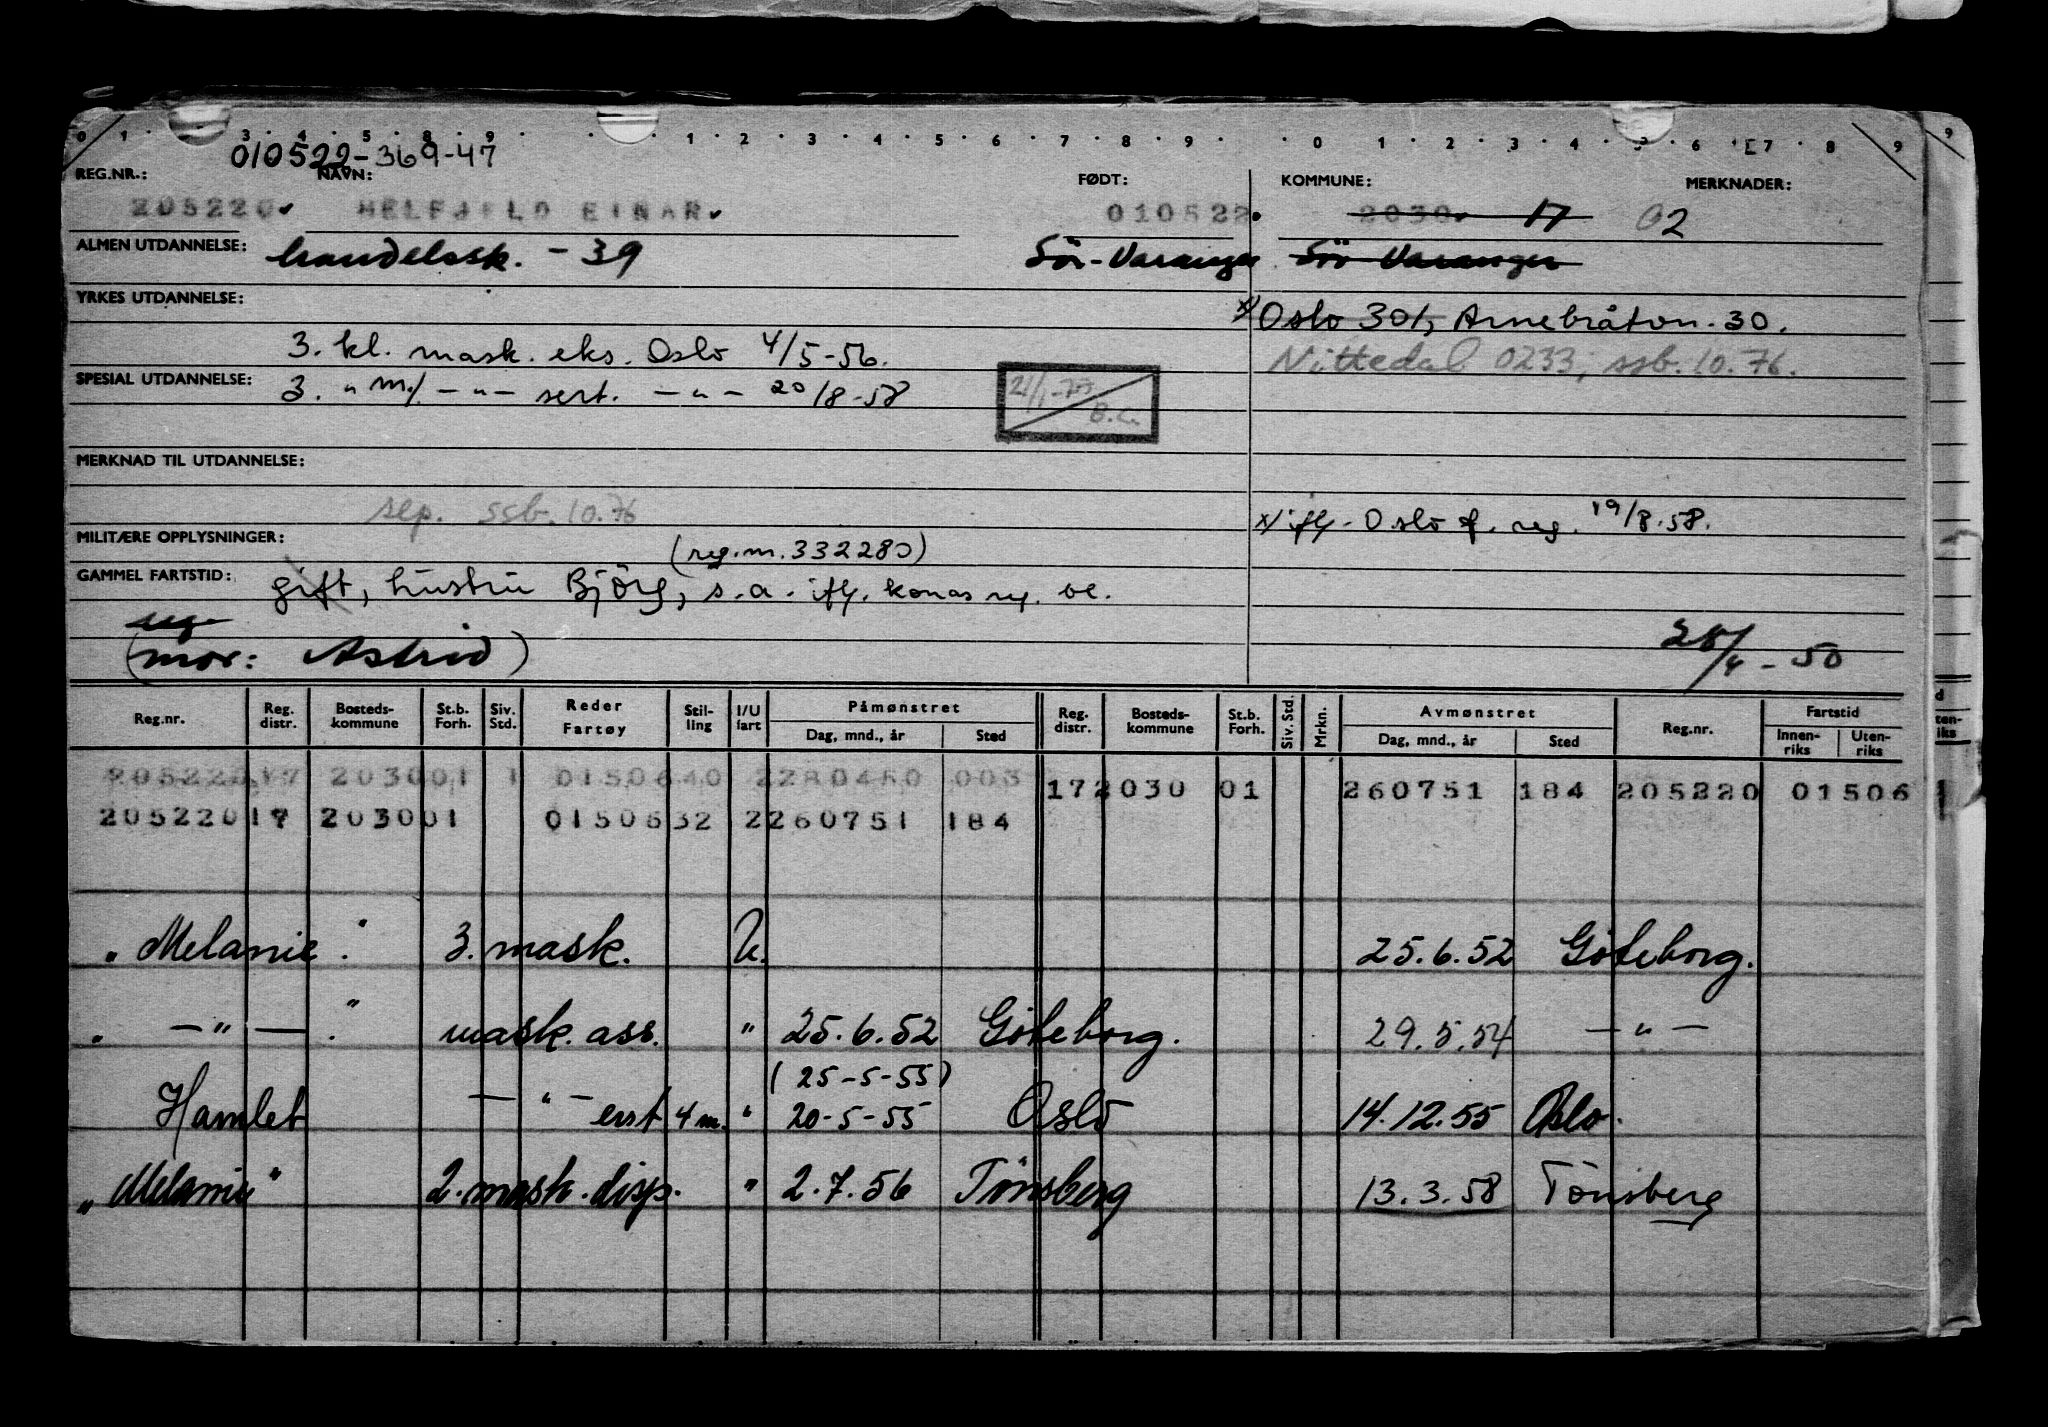 0 1 . . 3 . 4 . 5 . 8 . 9 . . . 1 . 2 . 3 . 4 . 5 . 6 . 7 . 8 . 9 . . 0 . 1 . 2 . 3 . 4 . 5 . 6 . 7 . 8 . 9
010522-369-47
REG.NR.: NAVN: FØDT: KOMMUNE: MERKNADER:
205220 HELFJELD EINAR 010522 2030 17 02
ALMEN UTDANNELSE: handelssk. - 39 Sör-Varanger Sör Varanger
YRKES UTDANNELSE:
x) Oslo 301, Arnebråtvn. 30.
3. kl. mask. eks. Oslo 4/5-56.
Nittedal 0233; ssb. 10.76.
SPESIAL UTDANNELSE: 3. " m/. - " - sert. - " - 20/8-58
21/1-77 B.C.
MERKNAD TIL UTDANNELSE:
sep. ssb. 10.76
x) ifg. Oslo f. reg. 19/8.58.
MILITÆRE OPPLYSNINGER:
(reg.nr. 332280)
GAMMEL FARTSTID: gift, hustru Björg, s.a. ifg. konas reg. bl.
ug.
(mor: Astrid)
28/4 - 50
Reg.nr. Reg. distr. Bosteds-kommune St.b. Forh. Siv. Std. Reder Fartøy Stil-ling I/U fart Påmønstret Dag, mnd., år Sted Reg. distr. Bosteds-kommune St.b. Forh. Siv. Std. Mrkn. Avmønstret Dag, mnd., år Sted Reg.nr. Fartstid Innen-riks Uten-riks
205220 17 2030 01 1 01506 40 2 280450 003 17 2030 01 260751 184 205220 01506
205220 17 2030 01 01506 32 2 260751 184
"Melanie". 3. mask. U. 25.6.52 Göteborg.
" — " — ". mask. ass. " 25.6.52 Göteborg. 29.5.54 — " —
(25-5-55)
Hamlet — " — erst 4 m. " 20-5-55 Oslo 14.12.55 Oslo.
"Melanie" 2. mask. disp. " 2.7.56 Tönsberg 13.3.58 Tönsberg